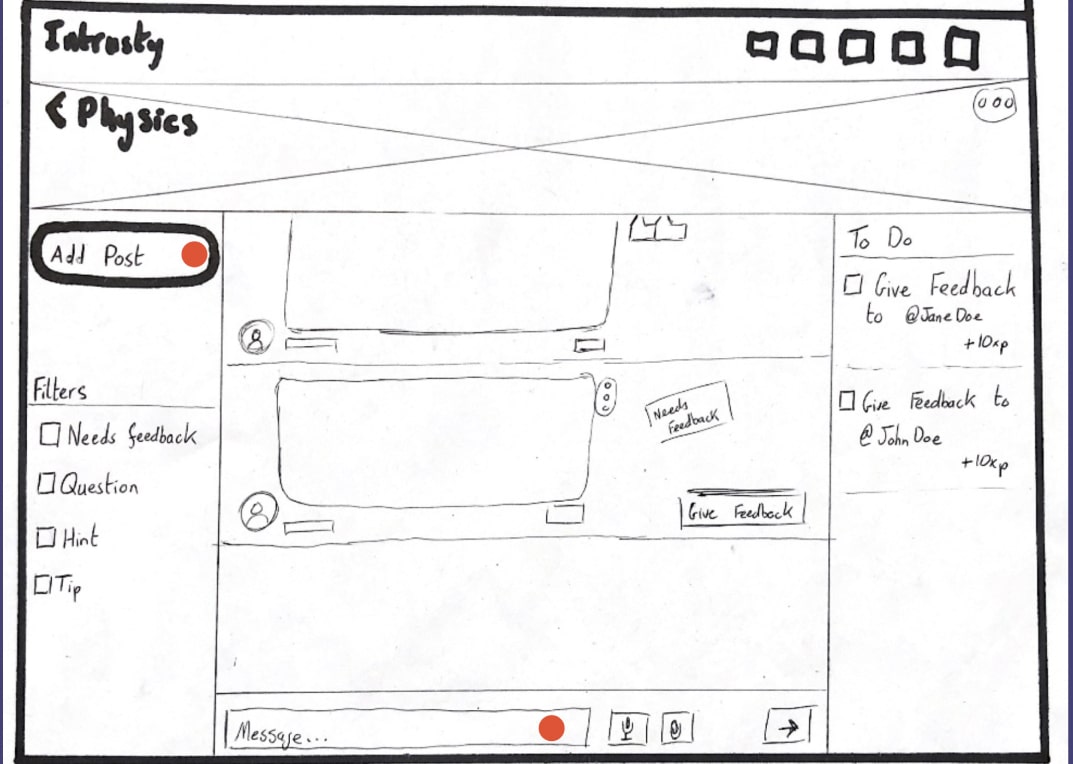 Intrusty
< Physics
Add Post
Filters
Needs feedback
Question
Hint
Tip
Needs
Feedback
Give Feedback
Message...
To Do
Give Feedback
to @Jane Doe
+10xp
Give Feedback to
@John Doe
+10xp